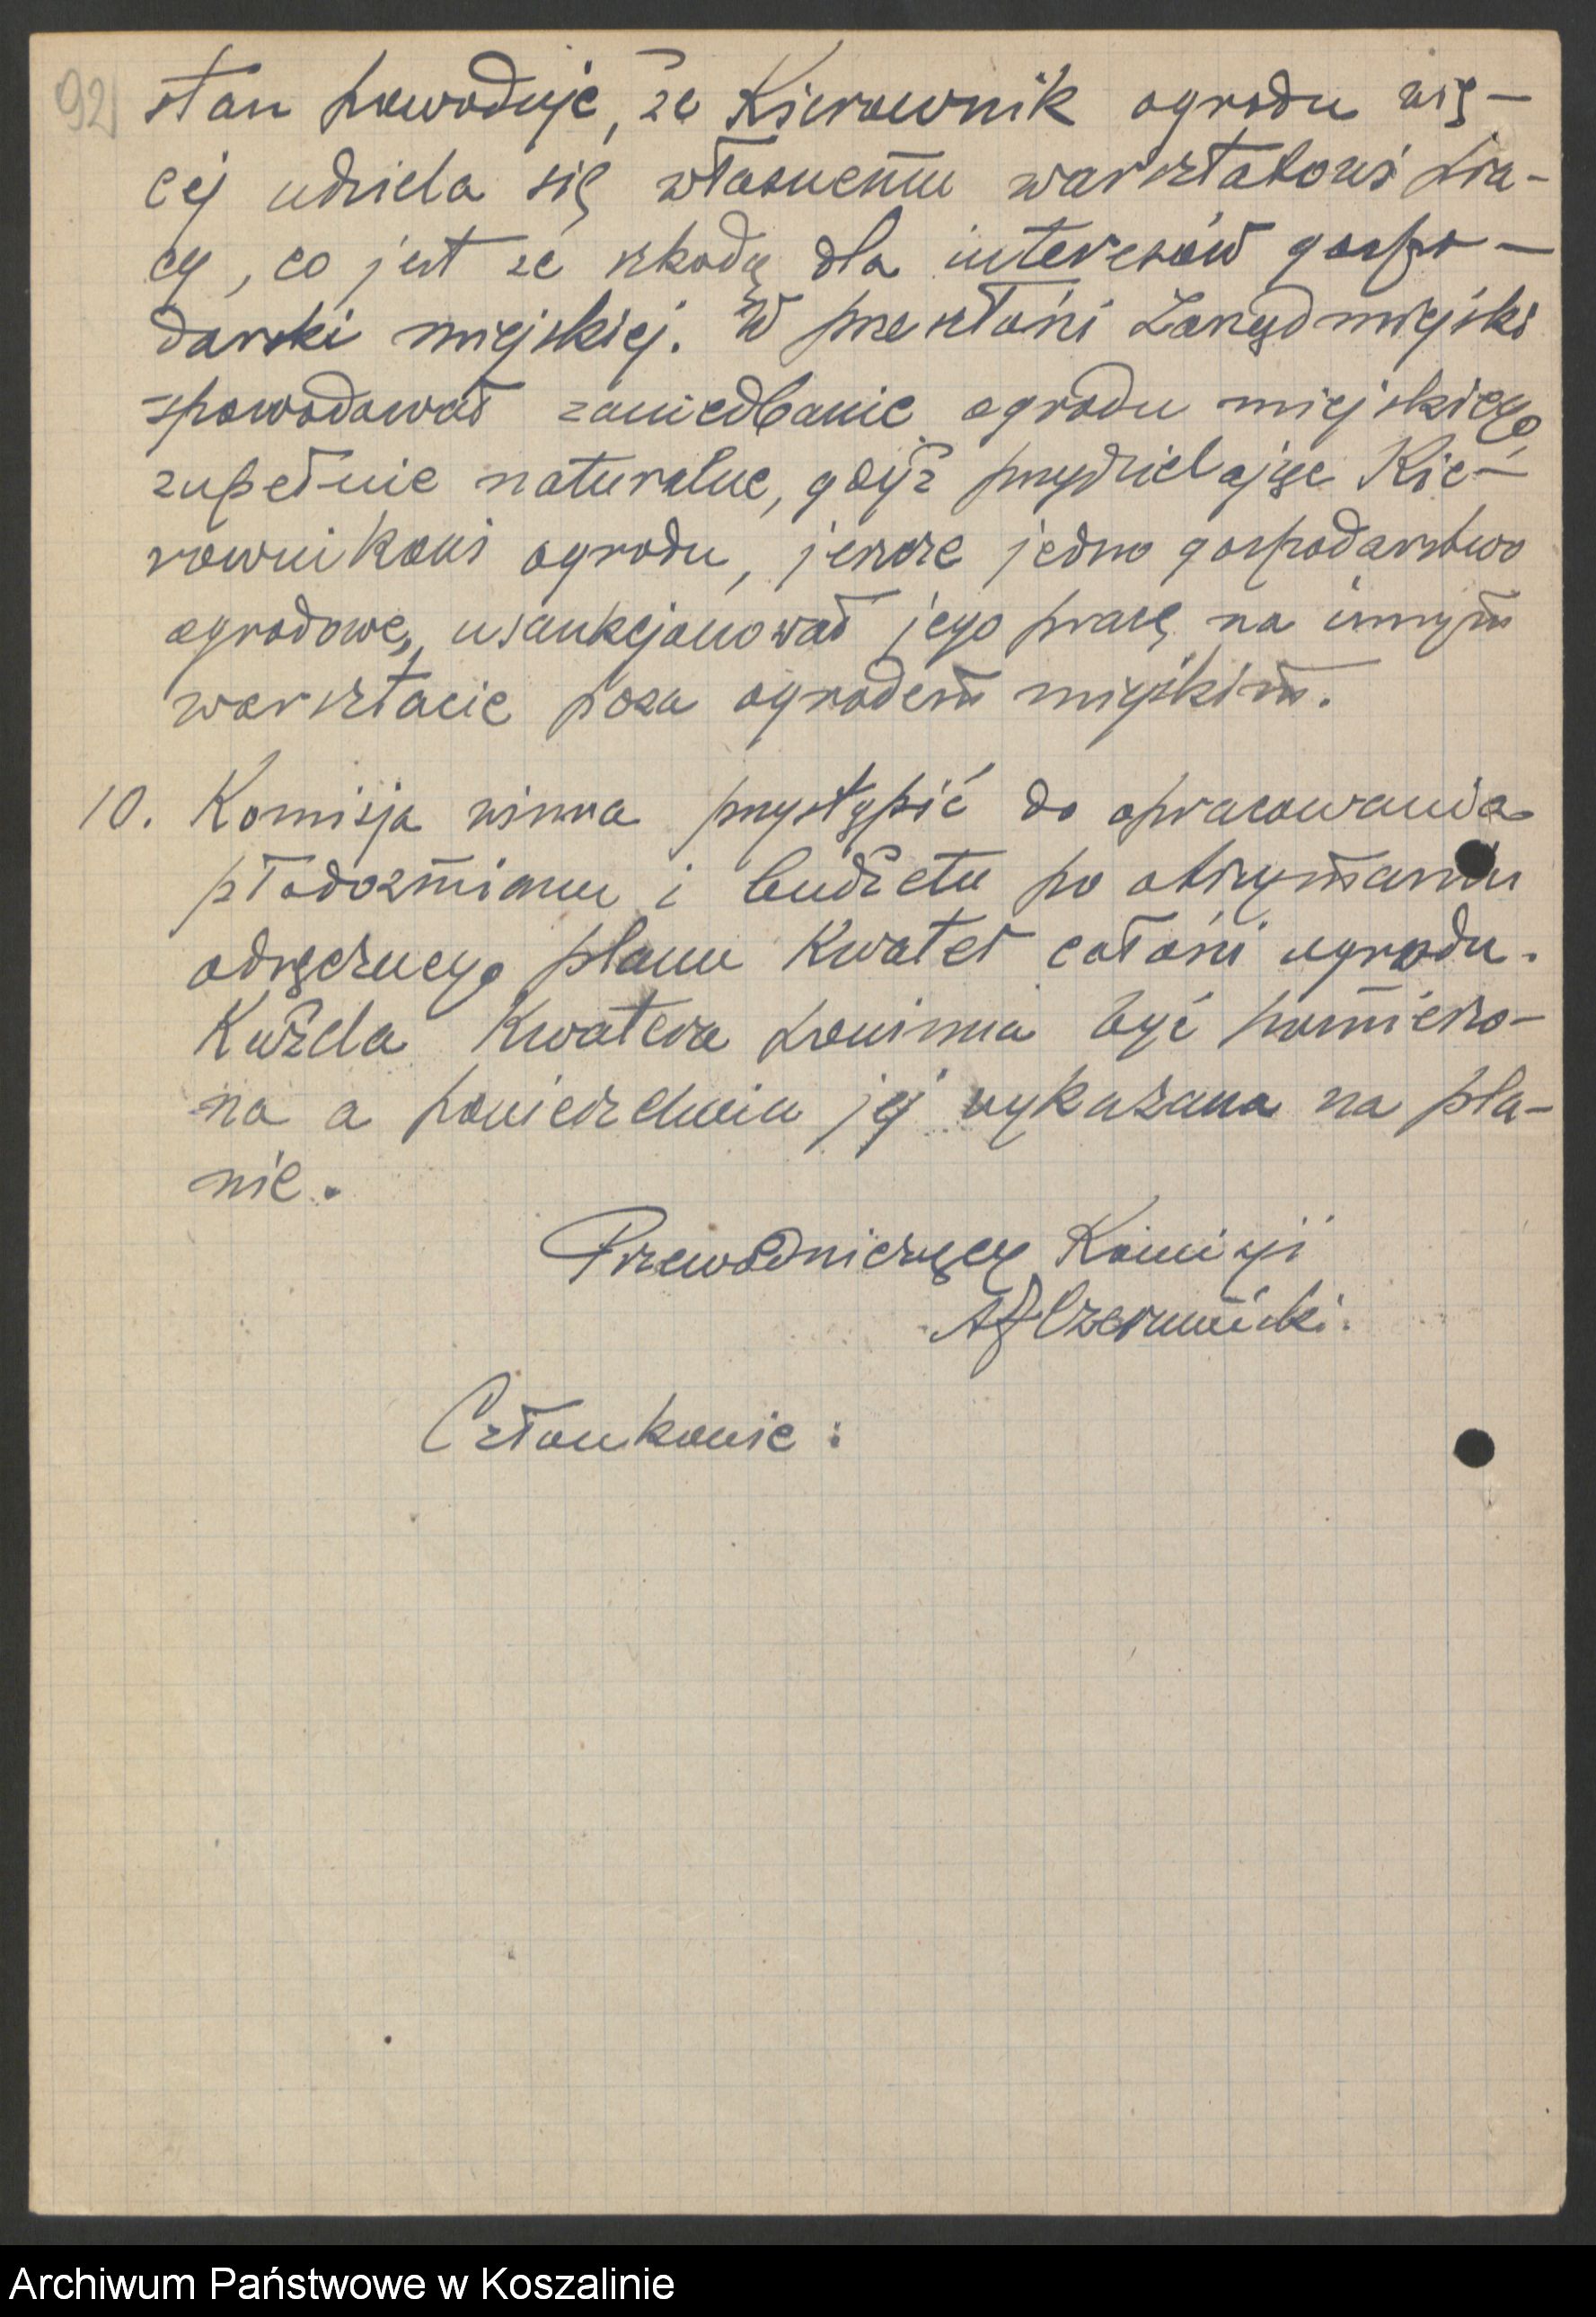 92
stan powoduje, że Kierownik ogrodu wię-
cej udziela się własnemu warsztatowi pra-
cy, co jest ze szkodą dla interesów gospo-
darki miejskiej. W przeszłości Zarząd miejski
spowodował zaniedbanie ogrodu miejskiego,
zupełnie naturalne, gdyż przydzielając Kie-
rownikowi ogrodu, jeszcze jedno gospodarstwo
ogrodowe, usankcjonował jego pracę na innym
warsztacie poza ogrodem miejskim.
10. Komisja winna przystąpić do opracowania
płodozmianu i budżetu po otrzymaniu
odręcznego planu kwater całości ogrodu.
Każda kwatera powinna być pomierzo-
na a powierzchnia jej wykazana na pla-
nie.
Przewodniczący Komisji
Czermiński.
Członkowie:
Archiwum Państwowe w Koszalinie